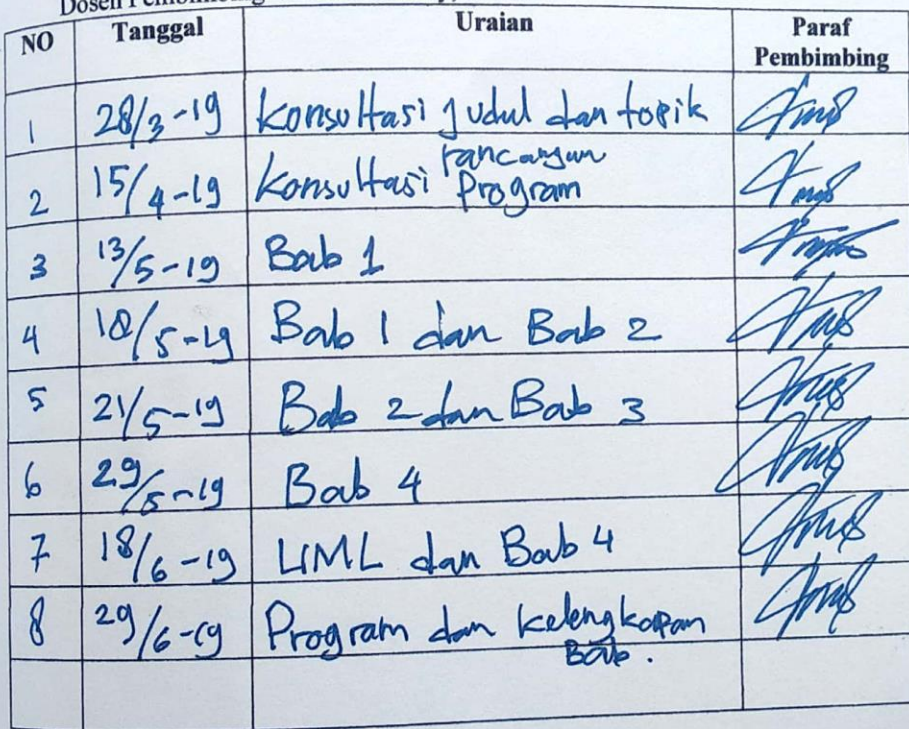 Dosen Pembimbing
NO Tanggal Uraian Paraf Pembimbing
1 28/3-19 Konsultasi Judul dan topik
2 15/4-19 Konsultasi rancangan Program
3 13/5-19 Bab 1
4 18/5-19 Bab 1 dan Bab 2
5 21/5-19 Bab 2 dan Bab 3
6 29/5-19 Bab 4
7 18/6-19 UML dan Bab 4
8 29/6-19 Program dan kelengkapan
Bab.